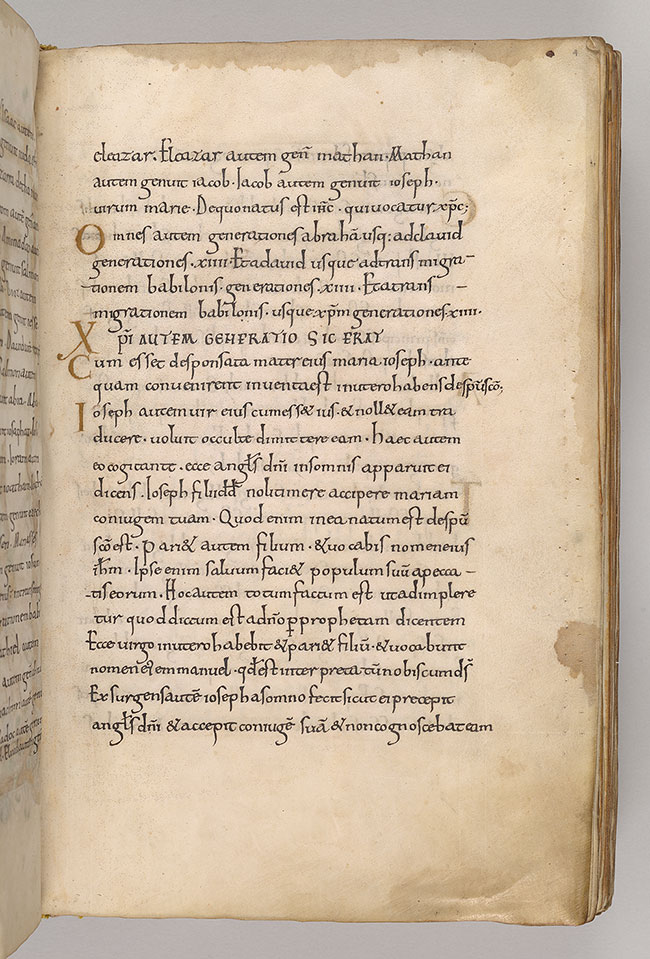 eleazar. Eleazar autem geñ mathan. Mathan
autem genuit iacob. Iacob autem genuit ioseph.
uirum marie. De quo natus est ihc̄. qui uocatur xp̄c;
Omnes autem generationes abrahā usq: ad dauid
generationes. xiiii. Et a dauid usque ad trans migra-
-tionem babilonis. generationes. xiiii. Et a trans-
migrationem babilonis. usque xp̄m generationes xiiii.
XP̄I AUTEM GENERATIO SIC ERAT
Cum esset desponsata mater eius maria ioseph. ante
quam conuenirent inuenta est in utero habens de sp̄u sc̄o;
Ioseph autem uir eius cum ess& ius. & noll& eam tra
ducere. uoluit occulte dimittere eam. haec autem
eo cogitante. ecce angl̄s dn̄i in somnis apparuit ei
dicens. Ioseph fili dd̄ noli timere accipere mariam
coniugem tuam. Quod enim in ea natum est de sp̄u
sc̄o est. Pari& autem filium. & uocabis nomen eius
ih̄m. Ipse enim saluum faci& populum suū a pecca-
-tis eorum. Hoc autem totum factum est ut adimplere
tur quod dictum est a dn̄o p̄ prophetam dicentem
Ecce uirgo in utero habebit & pari& filiū. & uocabunt
nomen ei emmanuel. qd̄ est inter pretatū nobiscum ds̄
Exsurgens autē ioseph a somno fecit sicut ei precepit
angl̄s dn̄i & accepit coniugē suā & non cognoscebat eam